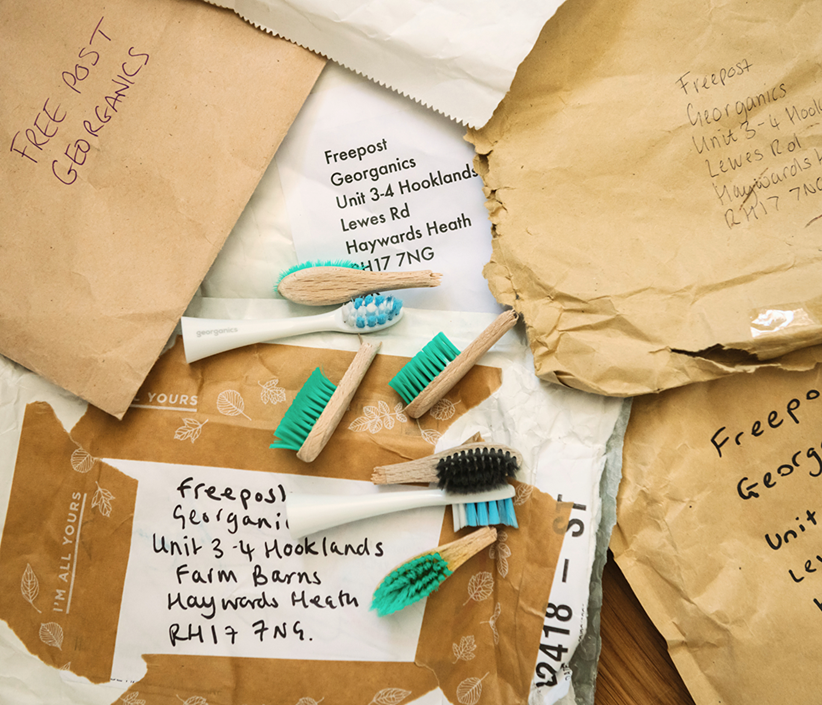 FREE POST
GEORGANICS
Freepost
Georganics
Unit 3-4 Hooklands
Lewes Rd
Haywards Heath
RH17 7NG
Freepost
Georganics
Unit 3-4
Lewes Rd
Haywards
RH17
georganics
YOURS
I'M ALL YOURS
Freepost
Unit 3-4 Hooklands
Farm Barns
Haywards Heath
RH17 7NG.
2418 – ST
Unit